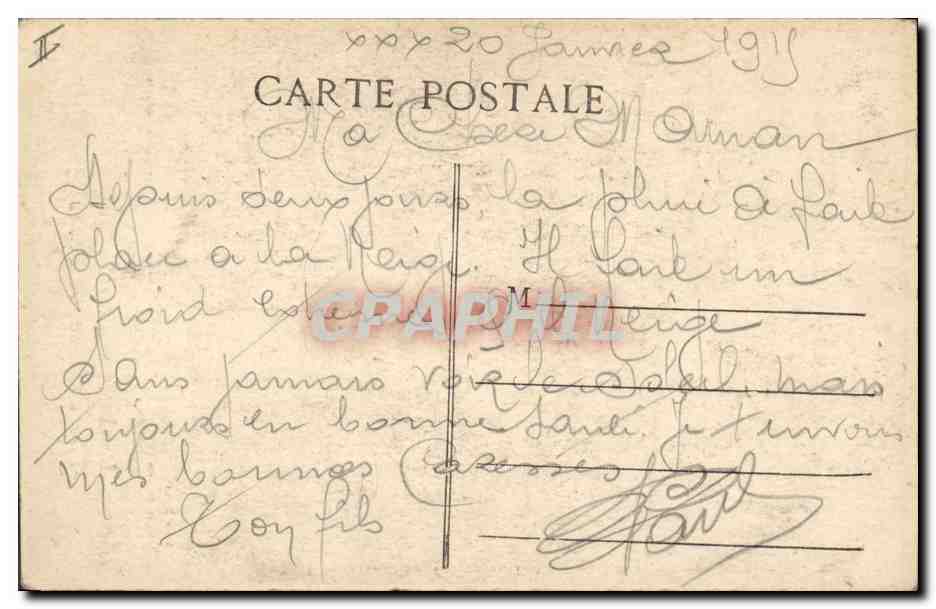 II
xxx 20 Janvier 1915
CARTE POSTALE
Ma Chere Maman
Depuis deux jours, la pluie à fait
place à la Neige. Il fait un
M
froid et la Neige
CPAPHIL
Sans jamais voir le Soleil, mais
toujours en bonne santé. Je t'envois
mes bonnes Caresses
Ton fils Paul